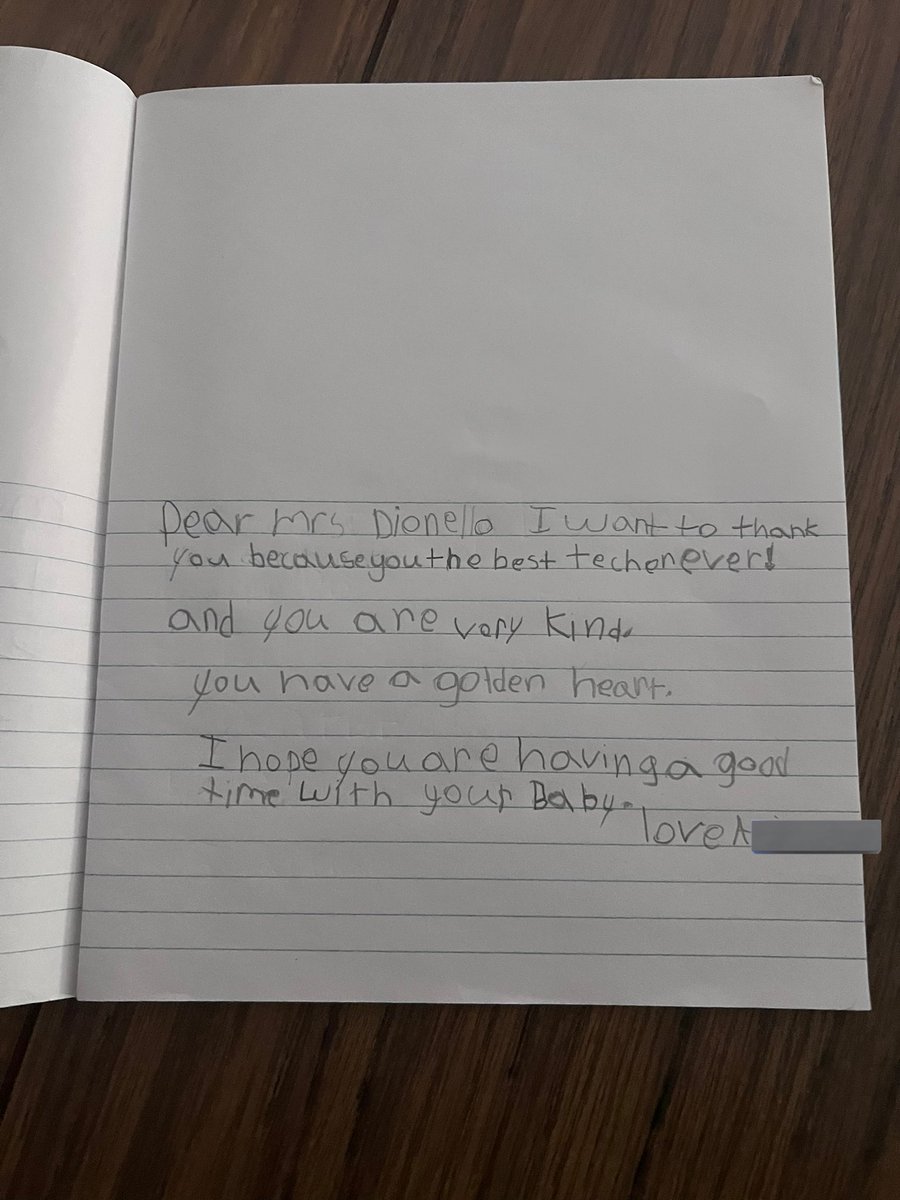 Dear Mrs Dionello I want to thank
you because you the best techer ever!
and you are very kind.
you have a golden heart.
I hope you are having a good
time with your Baby.
love A